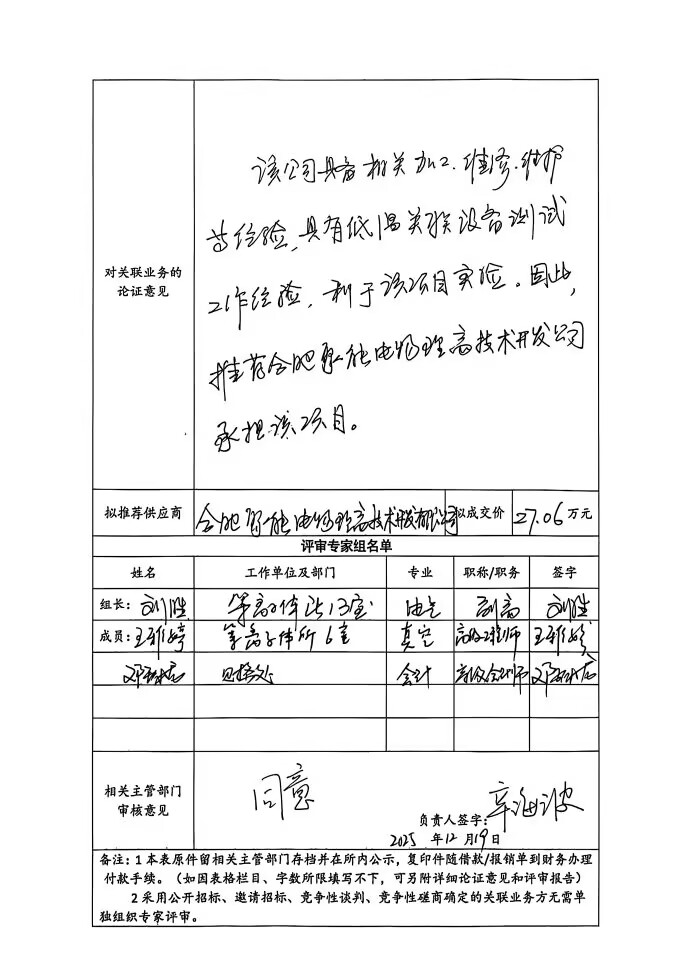 对关联业务的
论证意见
该公司具备相关加工、维修、维护
等经验,具有低温关联设备测试
工作经验,利于该项目实验。因此,
推荐合肥聚能电物理高技术开发公司
承担该项目。
拟推荐供应商 合肥聚能电物理高技术开发有限公司 拟成交价 27.06 万元
评审专家组名单
姓名 工作单位及部门 专业 职称/职务 签字
组长: 刘胜 等离子体所13室 电气 副高 刘胜
成员: 王雅婷 等离子体所6室 真空 高级工程师 王雅婷
财务处 会计 高级会计师
相关主管部门
审核意见
同意
负责人签字: 辛海波
2025 年12 月19日
备注:1 本表原件留相关主管部门存档并在所内公示,复印件随借款/报销单到财务办理
付款手续。(如因表格栏目、字数所限填写不下,可另附详细论证意见和评审报告)
2 采用公开招标、邀请招标、竞争性谈判、竞争性磋商确定的关联业务方无需单
独组织专家评审。